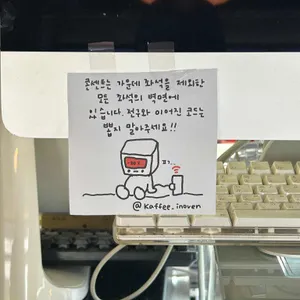 콘센트는 가운데 좌석을 제외한
모든 좌석의 벽면에
있습니다. 전구와 이어진 코드는
뽑지 말아주세요!!
@kaffee.inoven